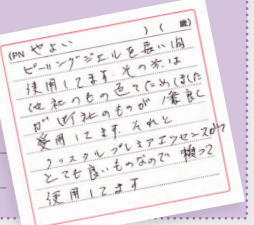 (PN やよい ) ( 歳)
ピーリングジェルを長い間
使用してます。その方は
他社のもの色々ためしました
が 御社のものが1番良く
愛用してます。それと
クリスタルプレミアエッセンスが
とても良いものなので 揃って
使用してます